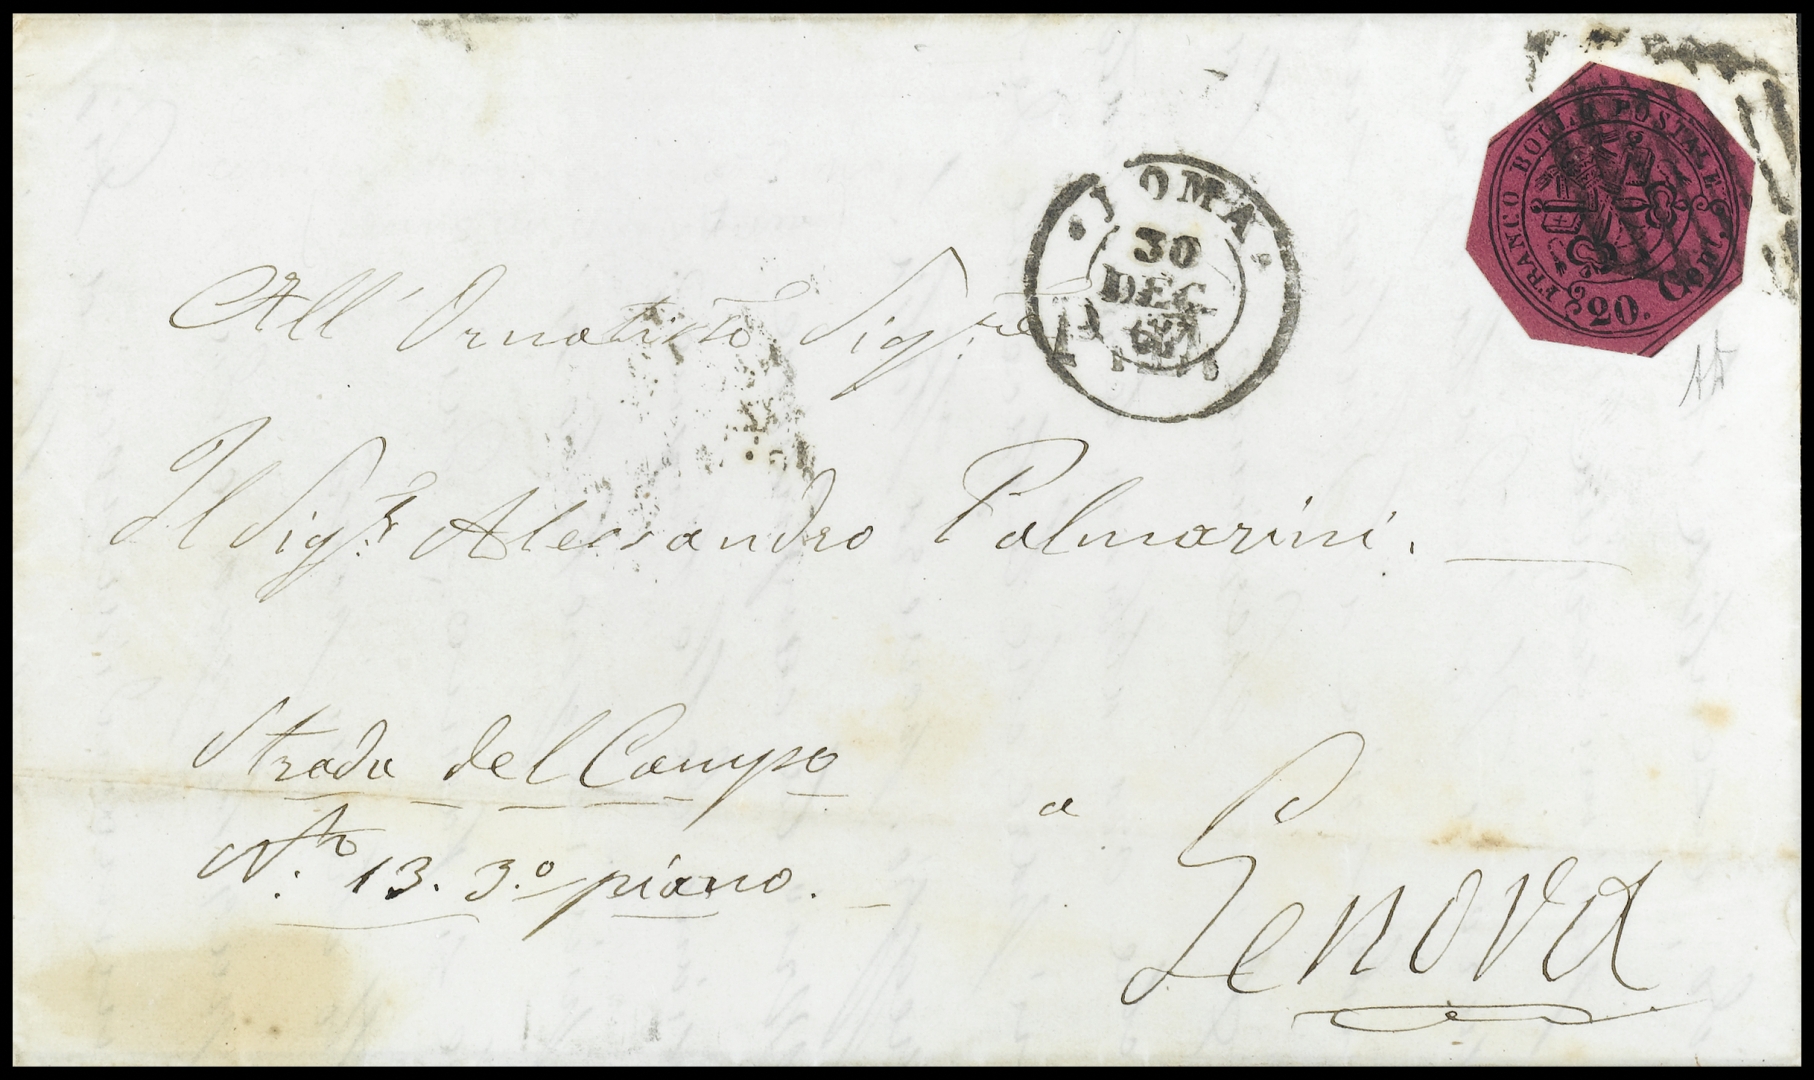 FRANCO BOLLO POSTALE
20. Cent.
ROMA
30
DEC
67
All' Ornatissᵐᵒ Sigʳᵉ
Il Sigʳ Alessandro Palmarini.
Strada del Campo
Nº 13. 3.º piano.
a
Genova